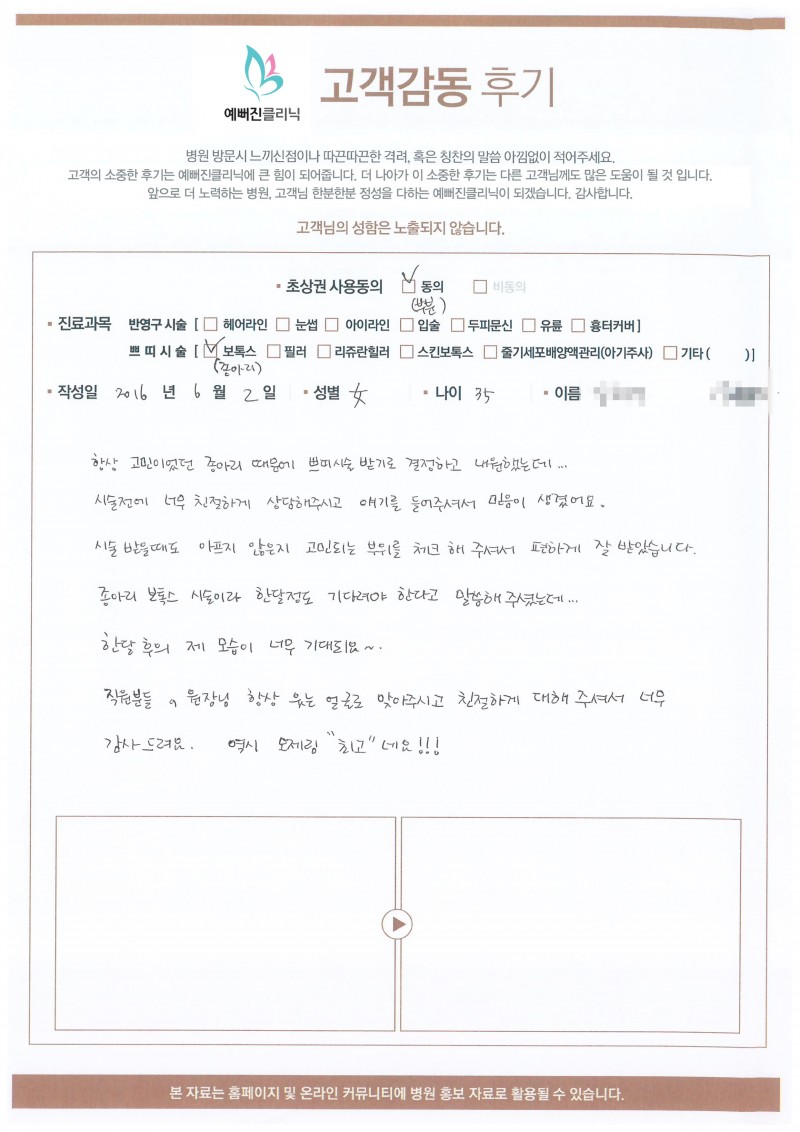 예뻐진클리닉
고객감동 후기
병원 방문시 느끼신점이나 따끈따끈한 격려, 혹은 칭찬의 말씀 아낌없이 적어주세요.
고객의 소중한 후기는 예뻐진클리닉에 큰 힘이 되어줍니다. 더 나아가 이 소중한 후기는 다른 고객님께도 많은 도움이 될 것 입니다.
앞으로 더 노력하는 병원, 고객님 한분한분 정성을 다하는 예뻐진클리닉이 되겠습니다. 감사합니다.
고객님의 성함은 노출되지 않습니다.
초상권 사용동의 동의 비동의
(부분)
진료과목 반영구 시술 [ 헤어라인 눈썹 아이라인 입술 두피문신 유륜 흉터커버 ]
쁘 띠 시 술 [ 보톡스 필러 리쥬란힐러 스킨보톡스 줄기세포배양액관리(아기주사) 기타 ( ) ]
(종아리)
작성일 2016 년 6 월 2 일 성별 女 나이 35 이름
항상 고민이었던 종아리 때문에 쁘띠시술 받기로 결정하고 내원했는데...
시술전에 너무 친절하게 상담해주시고 얘기를 들어주셔서 믿음이 생겼어요.
시술 받을때도 아프지 않은지 고민되는 부위를 체크 해 주셔서 편하게 잘 받았습니다.
종아리 보톡스 시술이라 한달정도 기다려야 한다고 말씀해 주셨는데...
한달 후의 제 모습이 너무 기대되요~.
직원분들, 원장님 항상 웃는 얼굴로 맞아주시고 친절하게 대해 주셔서 너무
감사드려요. 역시 오제림 "최고"네요!!!
본 자료는 홈페이지 및 온라인 커뮤니티에 병원 홍보 자료로 활용될 수 있습니다.